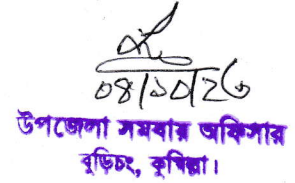 ০৪/১০/২৩
উপজেলা সমবায় অফিসার
বুড়িচং, কুমিল্লা।